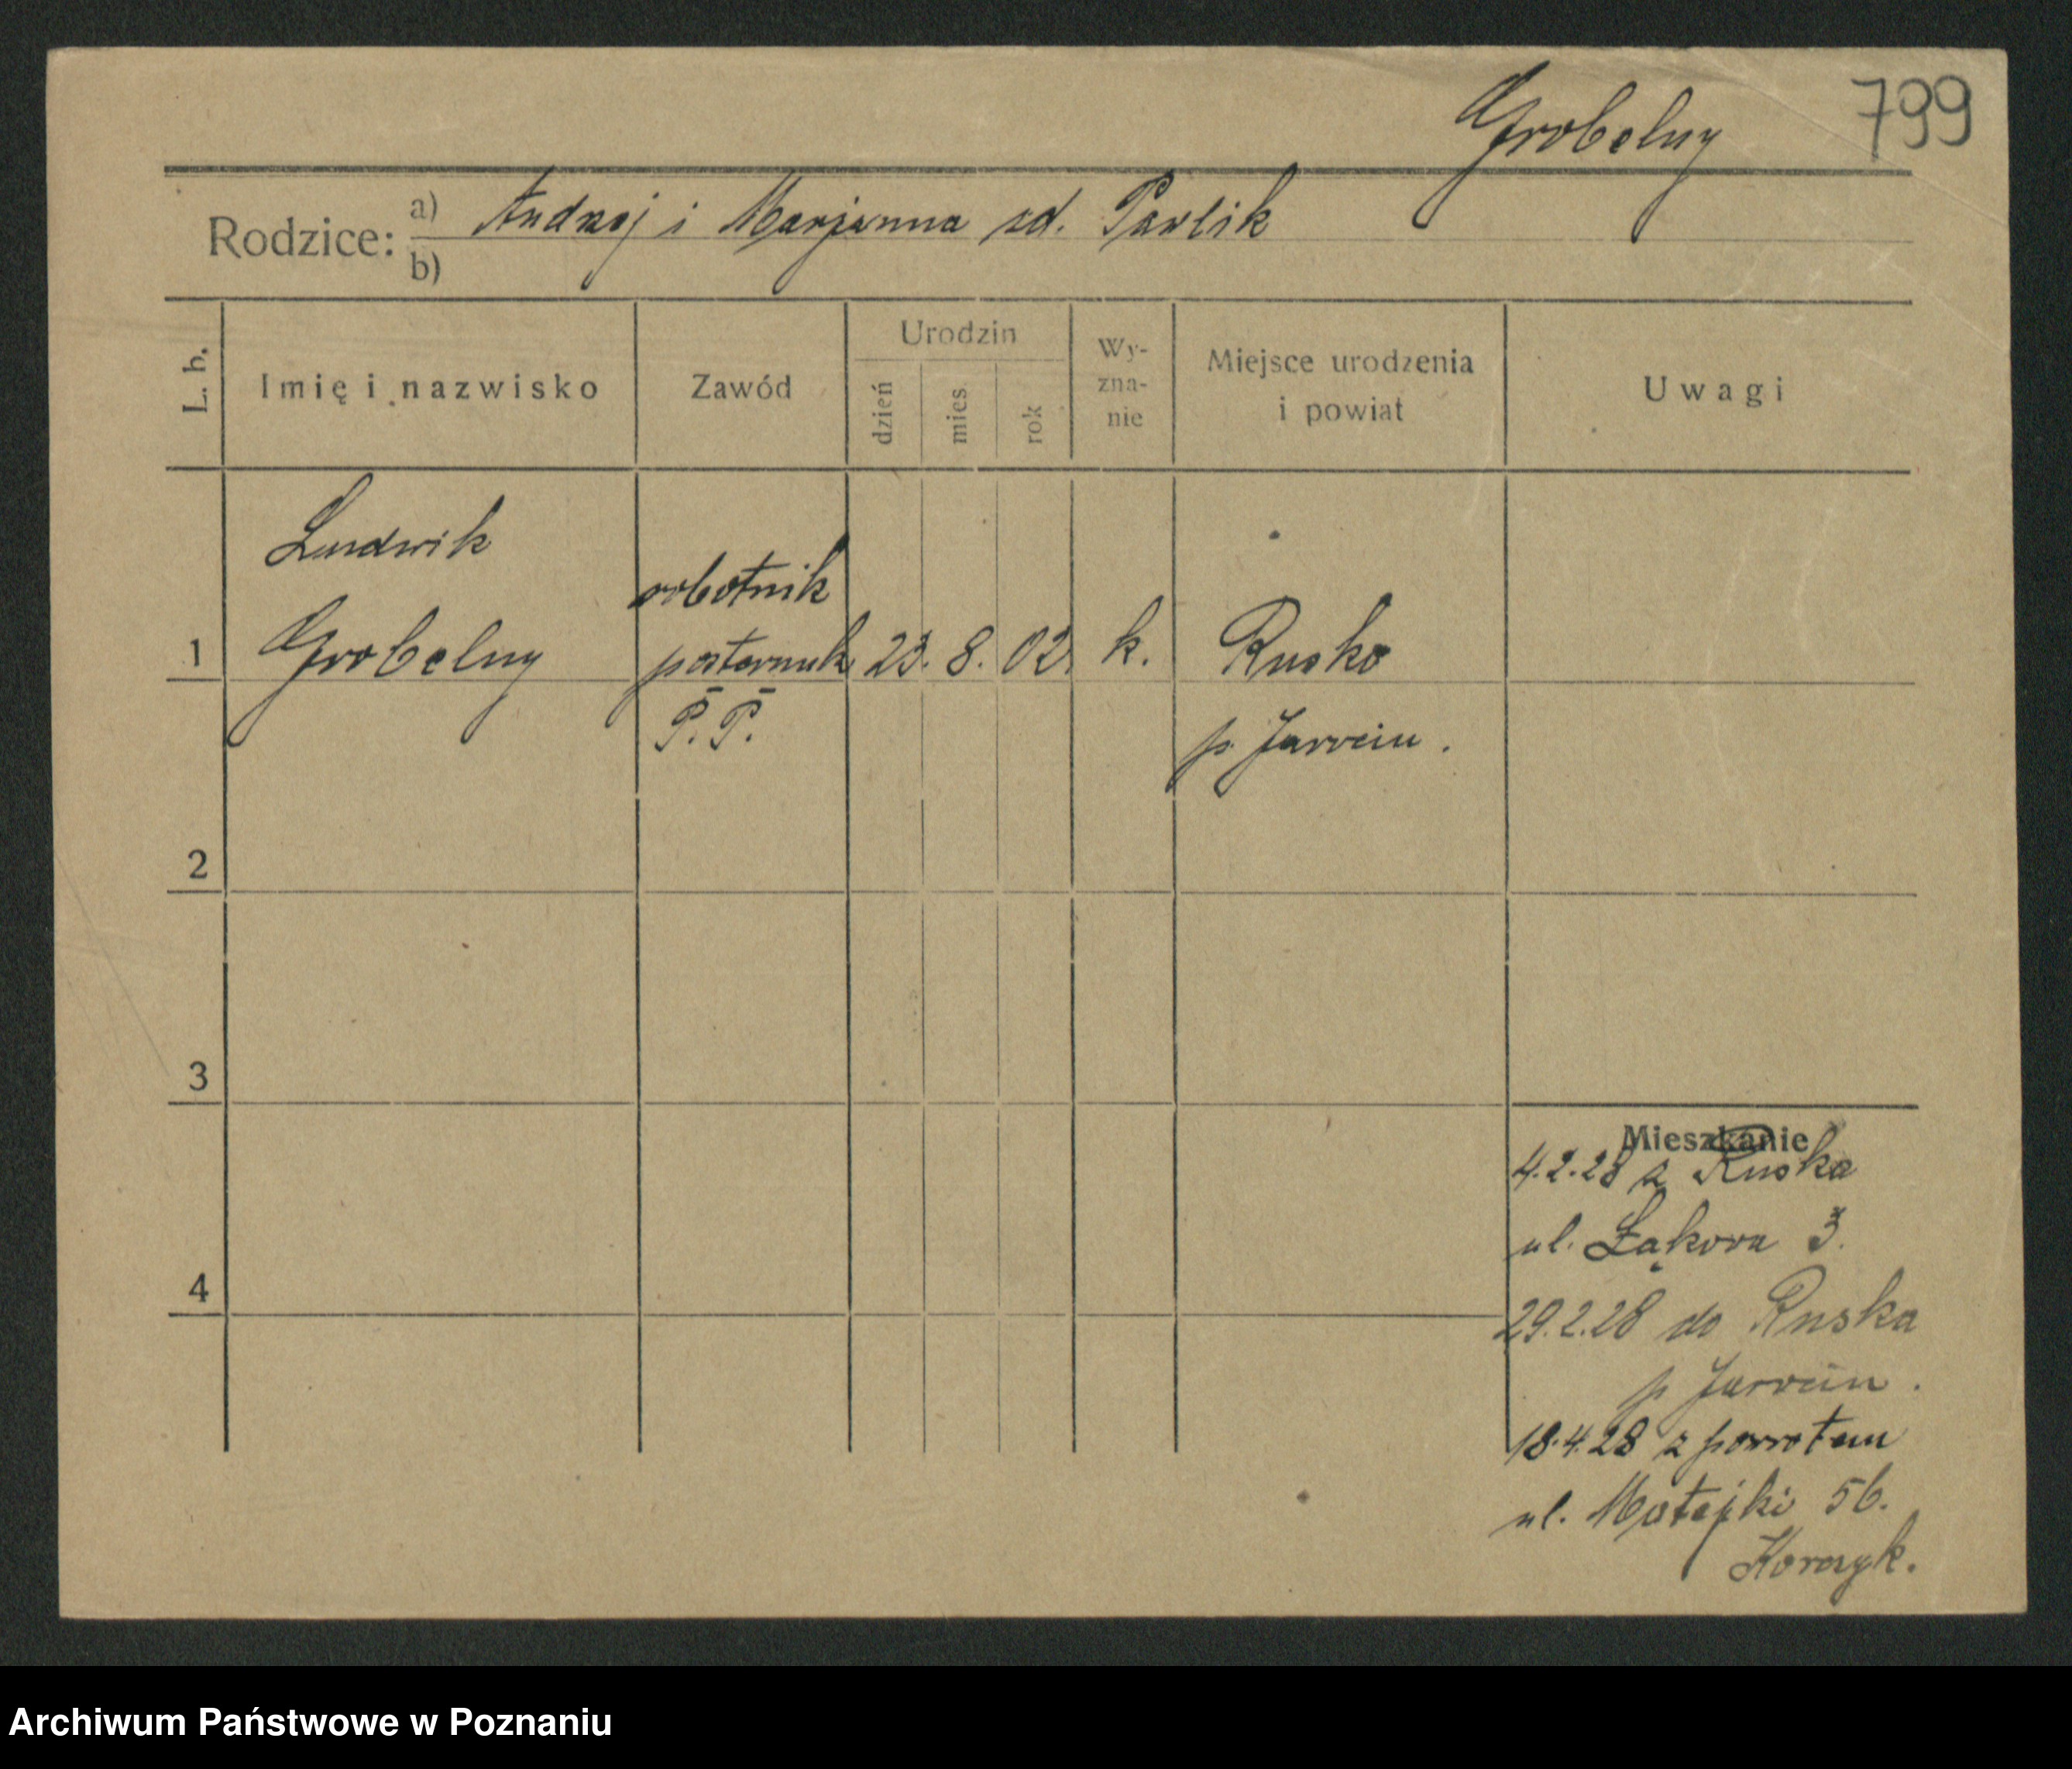 Grobelny 799
Rodzice: a) Andrzej i Marjanna zd. Pawlik
b)
L. b. Imię i nazwisko Zawód Urodzin dzień mies rok Wy-zna-nie Miejsce urodzenia i powiat Uwagi
Ludwik
robotnik
1 Grobelny posterunk. 23. 8. 02. k. Rusko
P. P. p. Jarocin.
2
3
Mieszkanie
4.2.28 z Ruska
ul. Łąkowa 3.
4
29.2.28 do Ruska
p Jarocin.
18.4.28 z powrotem
ul. Matejki 56.
Archiwum Państwowe w Poznaniu